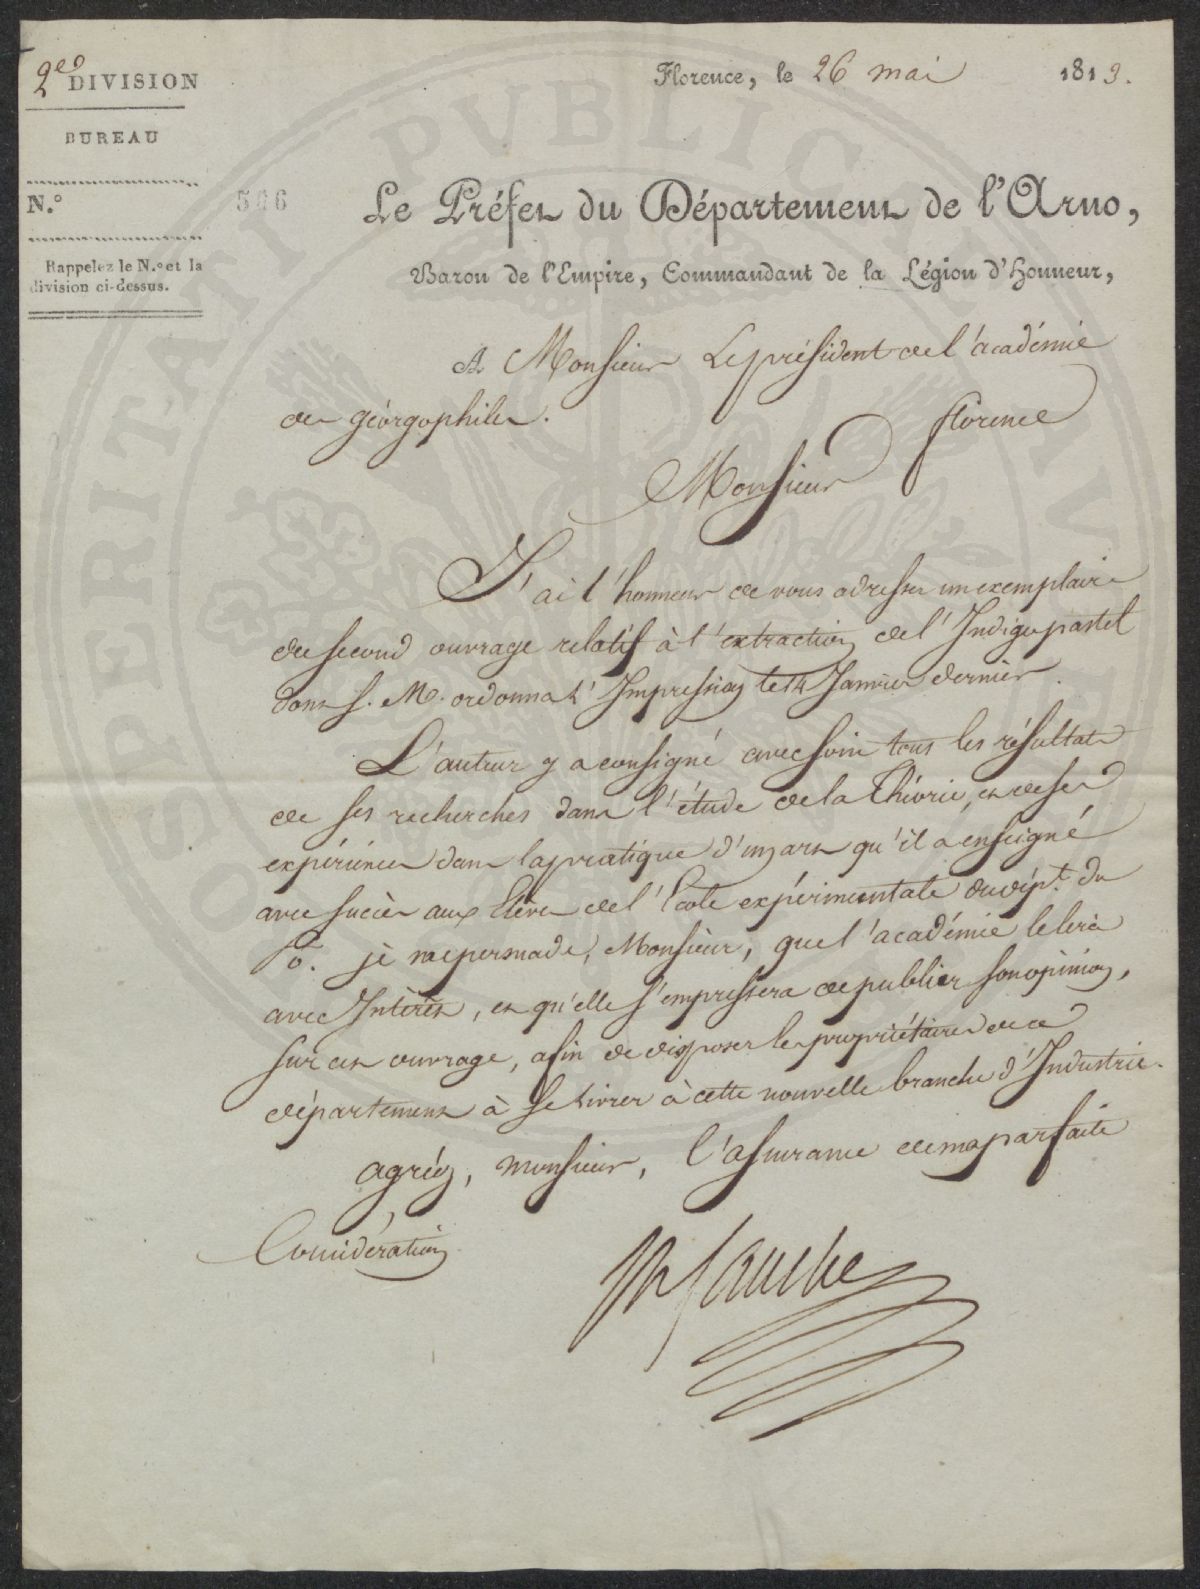 2.e DIVISION
BUREAU
N.°
Rappelez le N.° et la
division ci-dessus.
506
Florence, le 26 mai 1813.
Le Préfet du Département de l'Arno,
Baron de l'Empire, Commandant de la Légion d'Honneur,
A Monsieur Le président de l'académie
des géorgophiles.
florence
Monsieur
J'ai l'honneur de vous adresser un exemplaire
du second ouvrage relatif à l'extraction de l'Indigo pastel
dont S. M. ordonna l'Impression le 14 Janvier dernier.
L'auteur y a consigné avec soin tous les résultats
de ses recherches dans l'étude de la Théorie, et de ses
expériences dans la pratique d'un art qu'il a enseigné
avec succès aux Elèves de l'Ecole expérimentale du dép.t du
Pô. je me persuade, Monsieur, que l'académie le lira
avec Intérêt, et qu'elle s'empressera de publier son opinion,
sur cet ouvrage, afin de disposer les propriétaires de ce
département à se livrer à cette nouvelle branche d'Industrie.
agréez, monsieur, l'assurance de ma parfaite
Considération
fauchet
PROSPERITATI PUBLICAE AUGENDAE